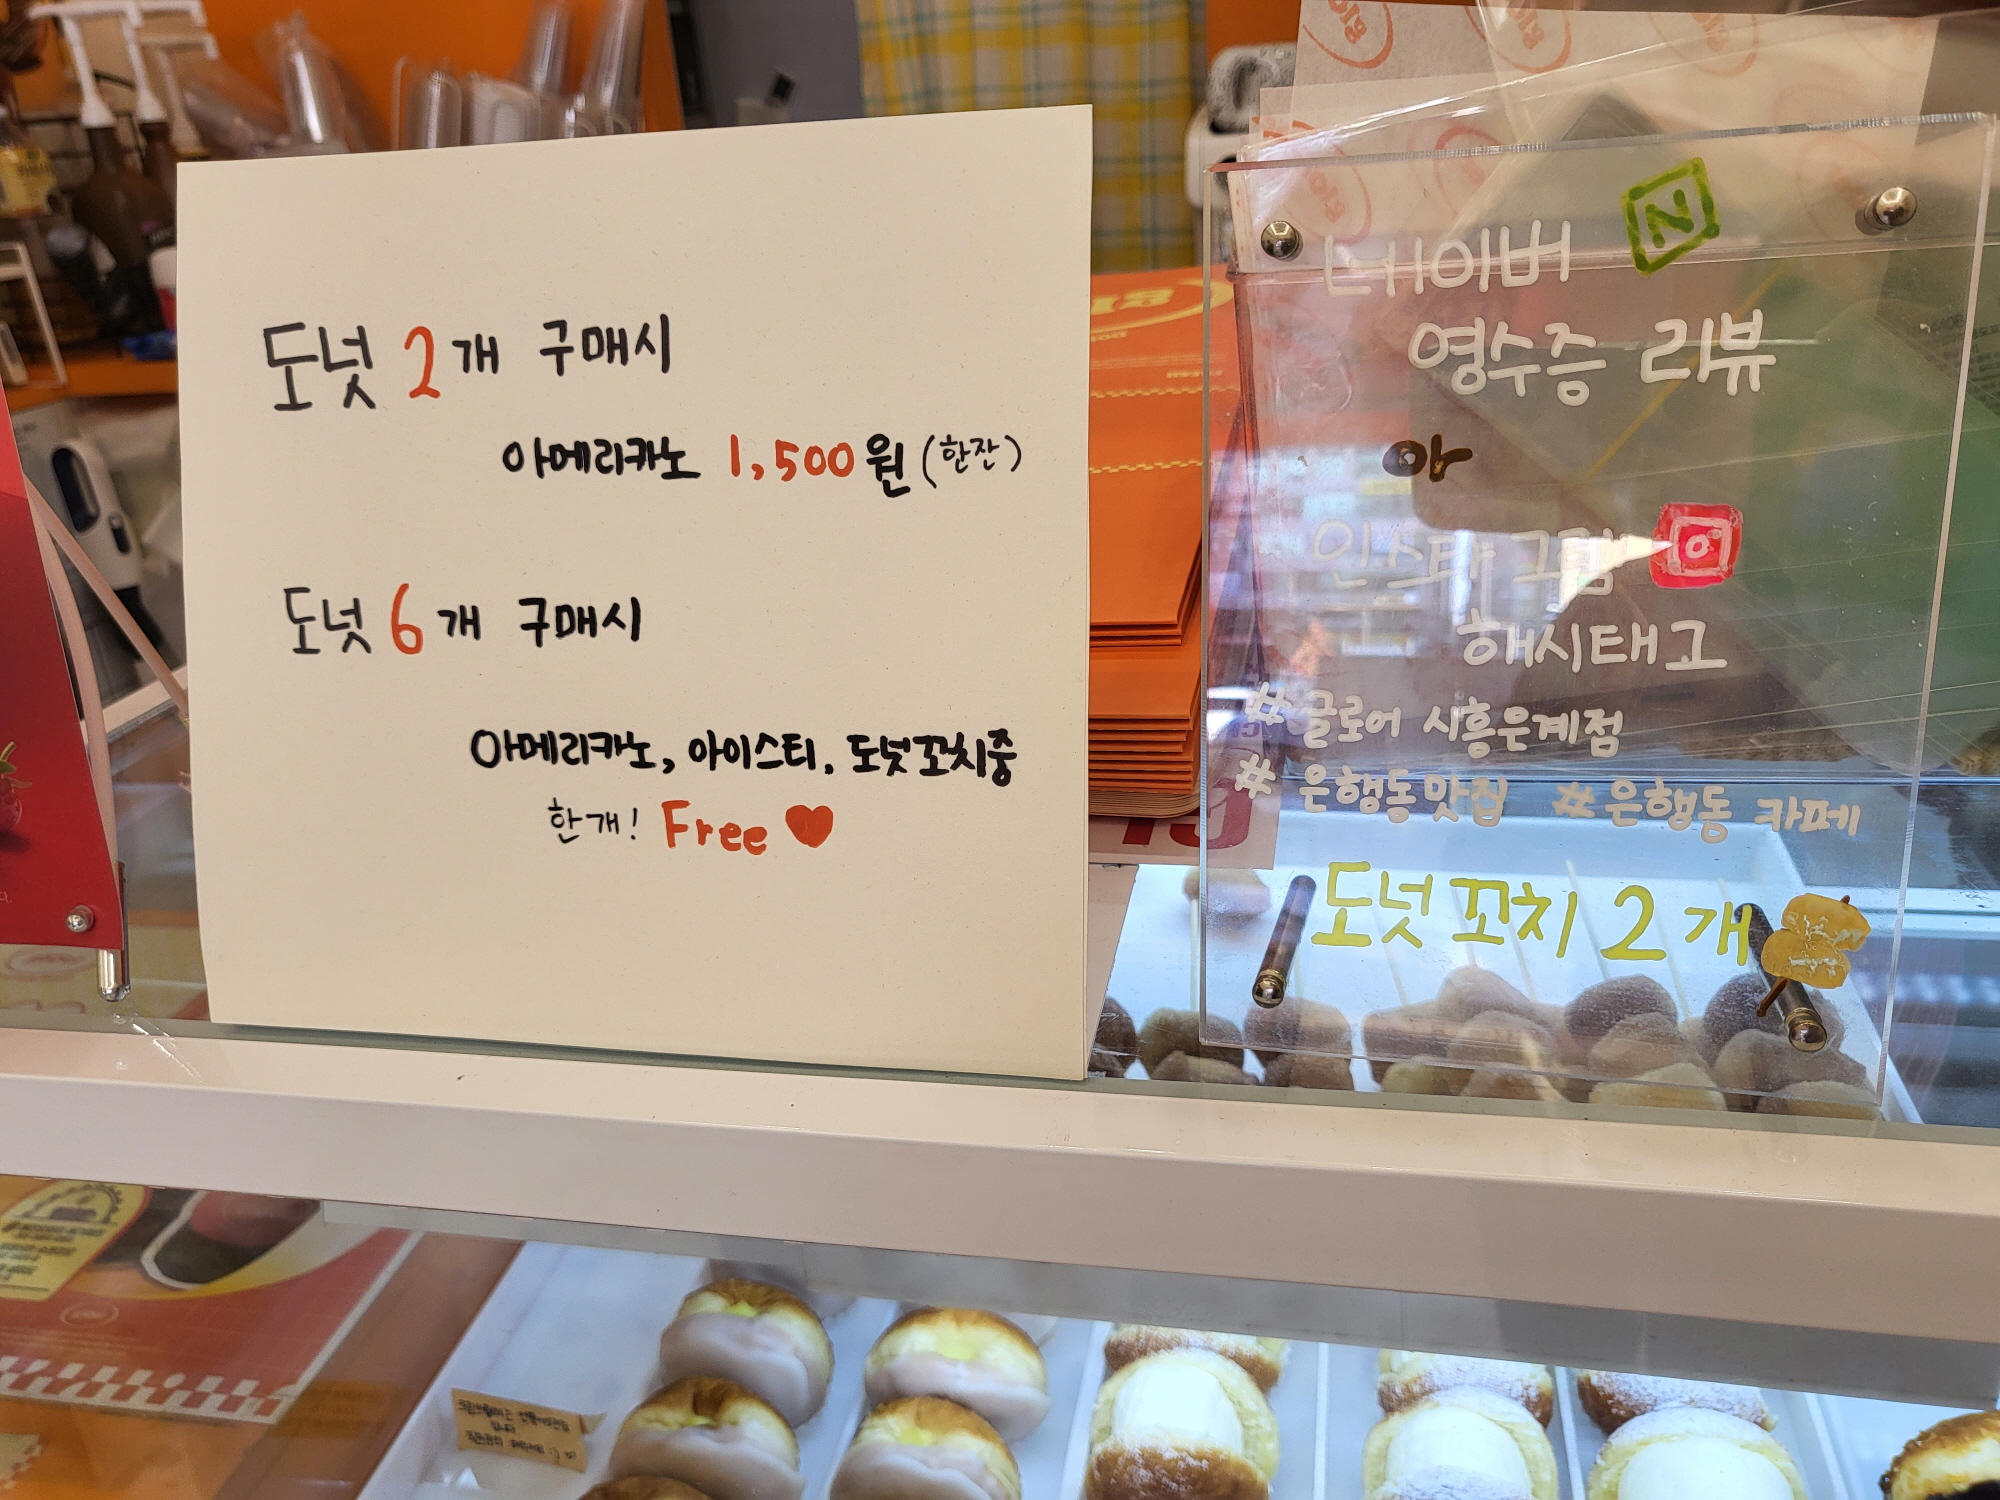 도넛 2개 구매시
아메리카노 1,500원 (한잔)
도넛 6개 구매시
아메리카노, 아이스티, 도넛꼬치중
한개! Free ♥
네이버 N
영수증 리뷰
and
인스타그램
해시태그
# 글로어 시흥은계점
# 은행동맛집 # 은행동 카페
도넛꼬치 2개